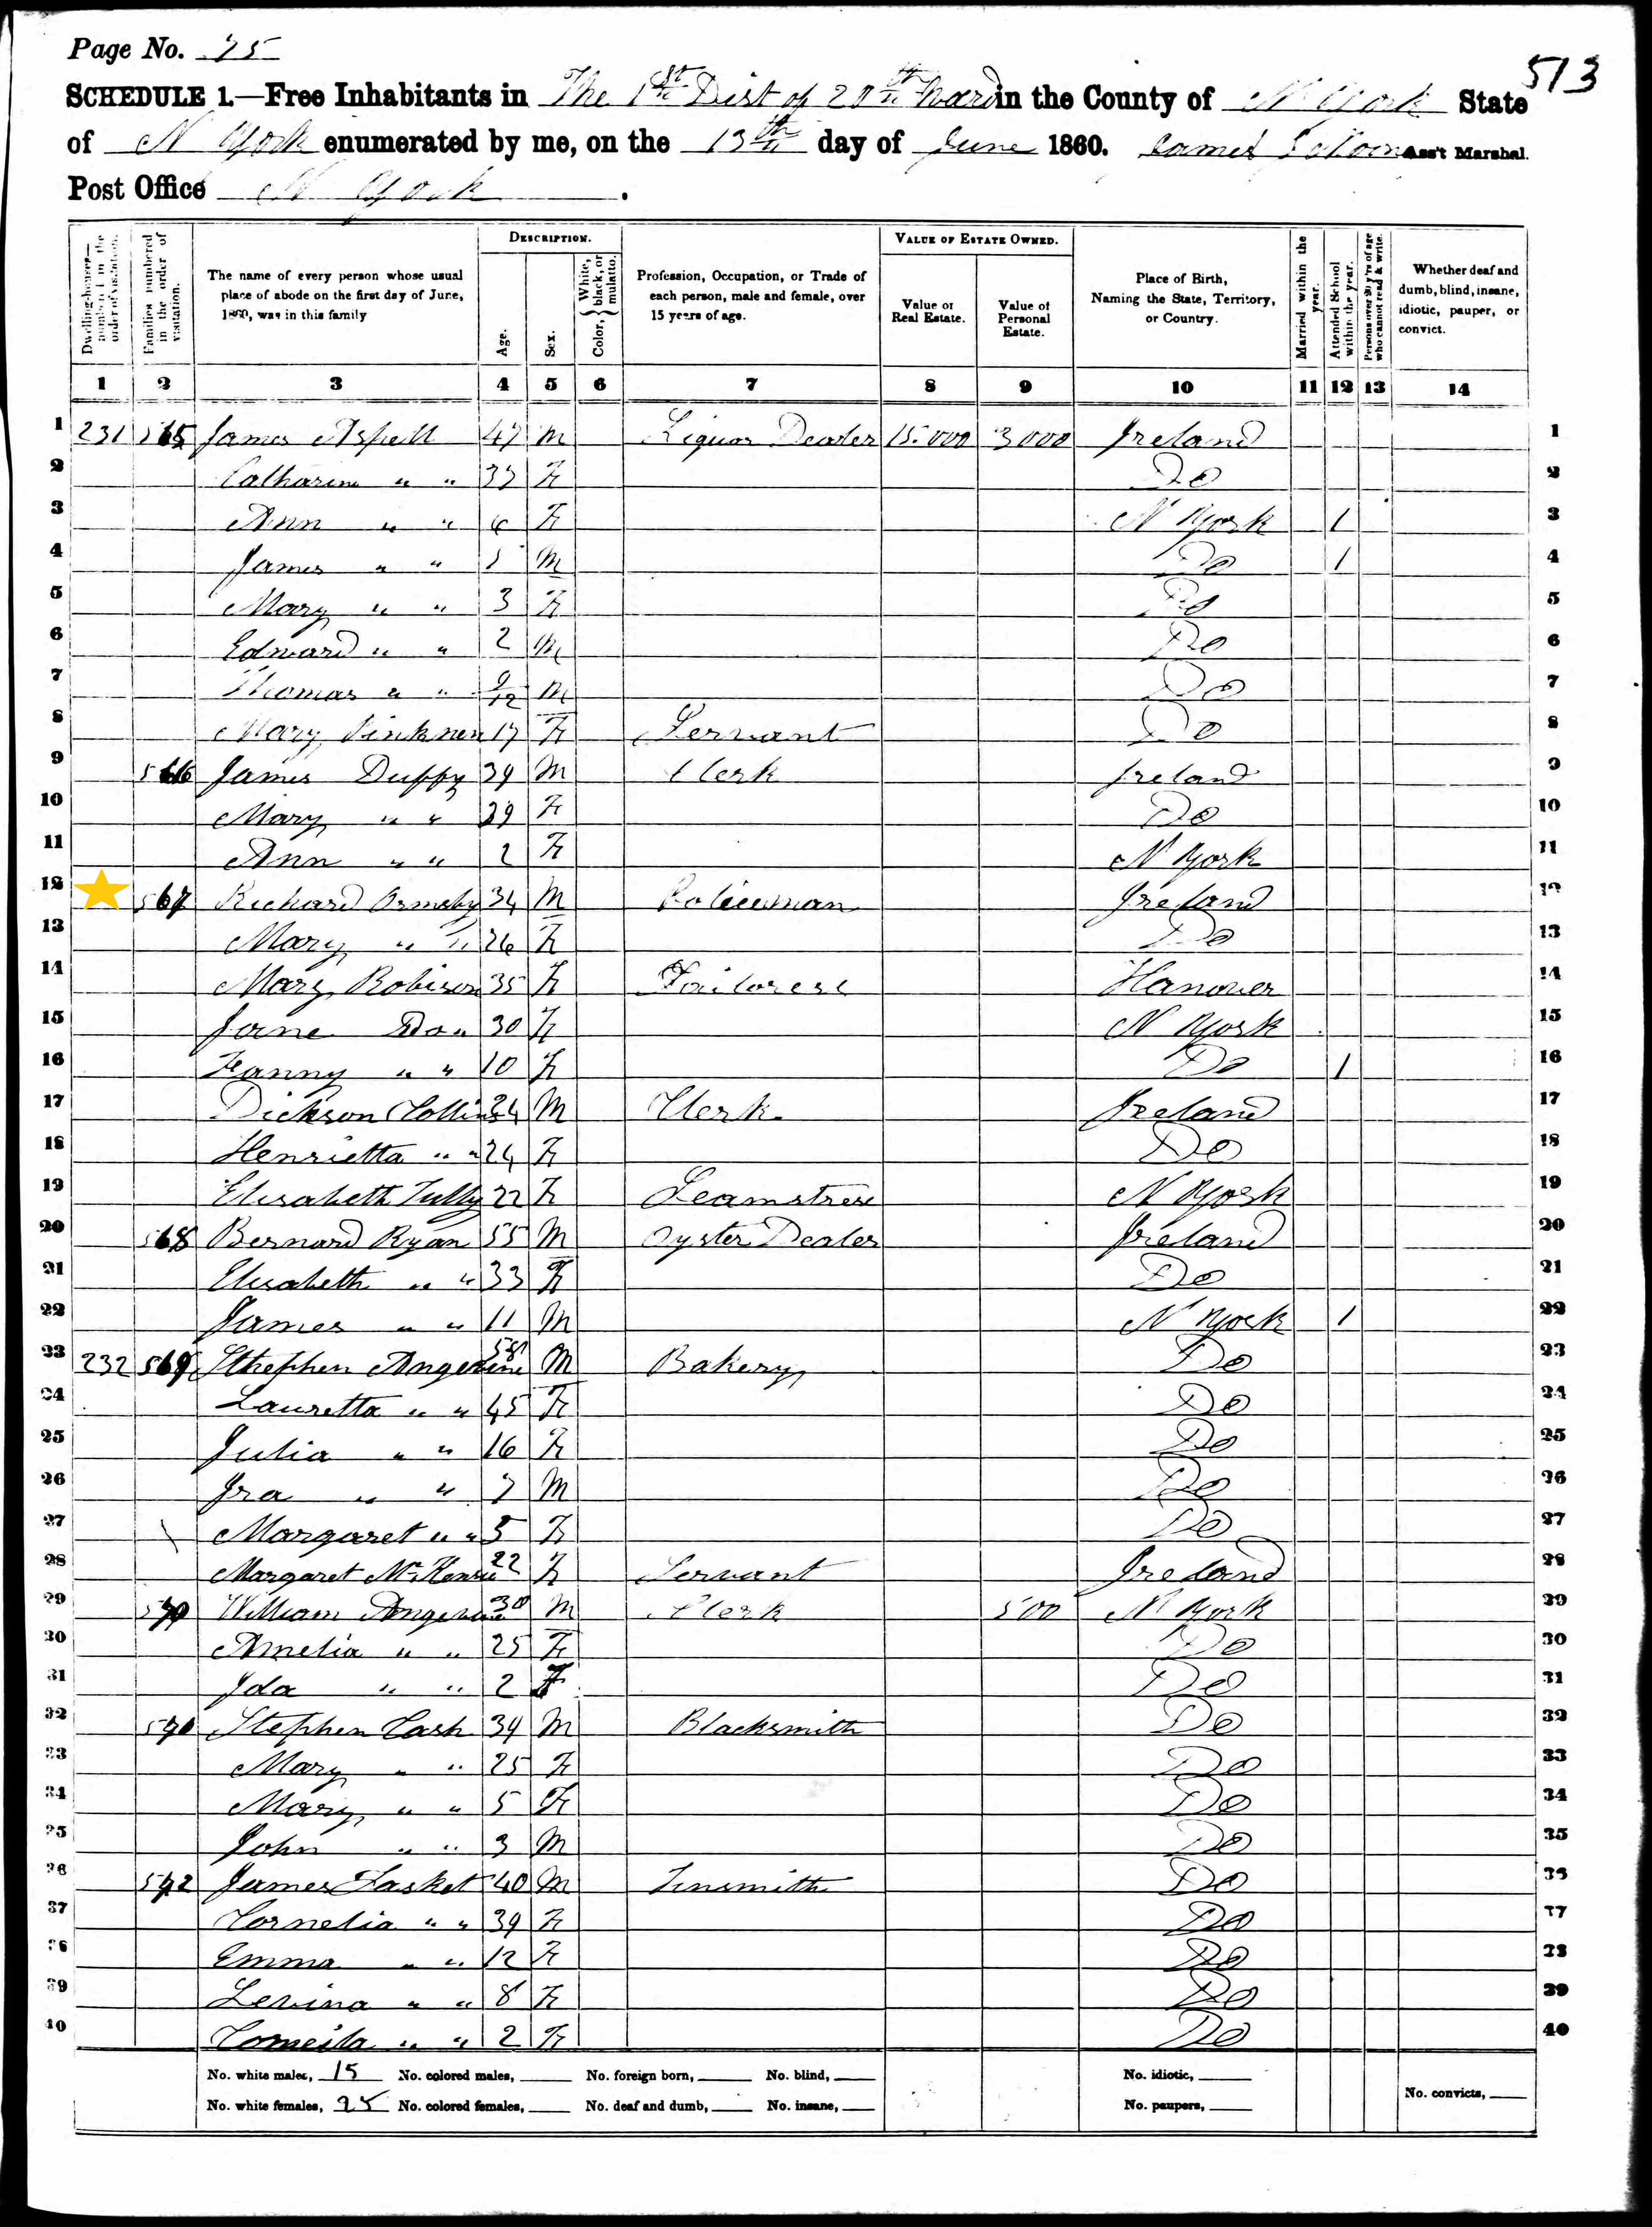 Page No. 75
513
SCHEDULE 1.—Free Inhabitants in The 1st Dist of 20th Ward in the County of N York State
of N York enumerated by me, on the 13th day of June 1860. James Ass't Marshal.
Post Office N York.
Dwelling-houses—numbered in the order of visitation.
Families numbered in the order of visitation.
The name of every person whose usual place of abode on the first day of June, 1860, was in this family
DESCRIPTION.
Age.
Sex.
Color, { White, black, or mulatto.
Profession, Occupation, or Trade of each person, male and female, over 15 years of age.
VALUE OF ESTATE OWNED.
Value of Real Estate.
Value of Personal Estate.
Place of Birth, Naming the State, Territory, or Country.
Married within the year.
Attended School within the year.
Persons over 20 y'rs of age who cannot read & write.
Whether deaf and dumb, blind, insane, idiotic, pauper, or convict.
1 2 3 4 5 6 7 8 9 10 11 12 13 14
1 231 565 James Aspell 47 M Liquor Dealer 15.000 3000 Ireland 1
2 Catharine " " F Do 2
3 Ann " " 6 F N York 1 3
4 James " " 5 M Do 1 4
5 Mary " " 3 F Do 5
6 Edward " " 2 M Do 6
7 Thomas " " 9/12 M Do 7
8 Mary 17 F Servant Do 8
9 566 James Duffy 39 M Clerk Ireland 9
10 Mary " " 29 F Do 10
11 Ann " " 2 F N York 11
12 567 Richard Ormsby 34 M Policeman Ireland 12
13 Mary " " 26 F Do 13
14 Mary Robison 35 F Tailoress Hanover 14
15 Jane Do " 30 F N York 15
16 Fanny " " 10 F Do 1 16
17 Dickson Collins 24 M Clerk Ireland 17
18 Henrietta " " 24 F Do 18
19 Elisabeth Tully 22 F Seamstress N York 19
20 568 Bernard Ryan 55 M Oyster Dealer Ireland 20
21 Elisabeth " " 33 F Do 21
22 James " " 11 M N York 1 22
23 232 569 Sthephen Angevine M Bakery Do 23
24 Lauretta " " 45 F Do 24
25 Julia " " 16 F Do 25
26 Ira " " 7 M Do 26
27 Margaret " " 5 F Do 27
28 Margaret McKensie 22 F Servant Ireland 28
29 570 William Angevine 30 M Clerk 500 N York 29
30 Amelia " " 25 F Do 30
31 Ida " " 2 F Do 31
32 Stephen Cash 34 M Blacksmith Do 32
33 Mary " " 25 F Do 33
34 Mary " " 5 F Do 34
35 John " " 3 M Do 35
36 572 James Lasket 40 M Tinsmith Do 36
37 Cornelia " " 39 F Do 37
38 Emma " " 12 F Do 38
39 Levina " " 8 F Do 39
40 " " 2 F Do 40
No. white males, 15 No. colored males, No. foreign born, No. blind, No. idiotic,
No. white females, 25 No. colored females, No. deaf and dumb, No. insane, No. paupers, No. convicts,